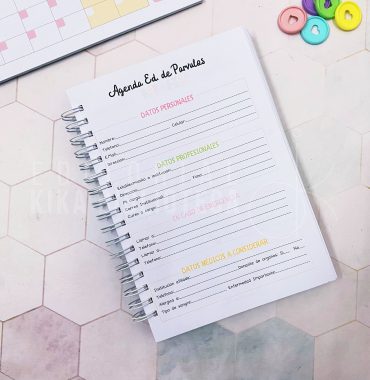 Agenda Ed. de Parvulos
DATOS PERSONALES
Nombre
Teléfono Celular
E-mail
Dirección
DATOS PROFESIONALES
Establecimiento o institución
Dirección Fono
Correo Institucional
Curso a cargo
EN CASO DE EMERGENCIA
Llamar a:
Teléfono:
Llamar a:
Teléfono:
DATOS MÉDICOS A CONSIDERAR
Donador de órganos Si No
Teléfono:
Alergias a: Enfermedades importantes
Tipo de sangre: